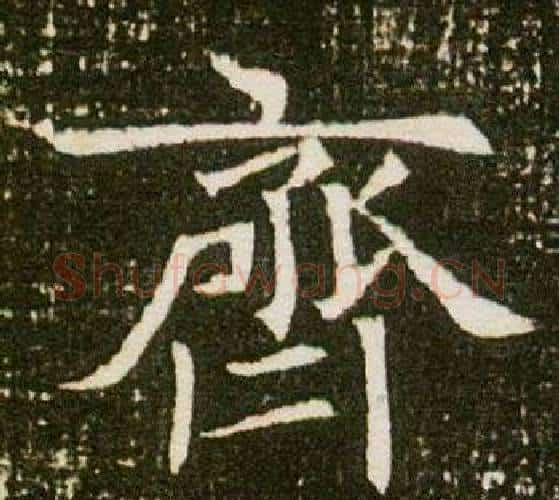 齊
Shufawang.CN